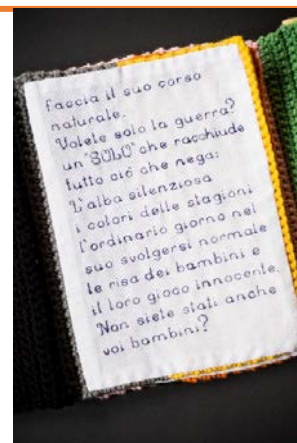 faccia il suo corso
naturale.
Volete solo la guerra?
un "SOLO" che racchiude
tutto ciò che nega:
L'alba silenziosa
i colori delle stagioni
l'ordinario giorno nel
suo svolgersi normale
le risa dei bambini e
il loro gioco innocente.
Non siete stati anche
voi bambini?